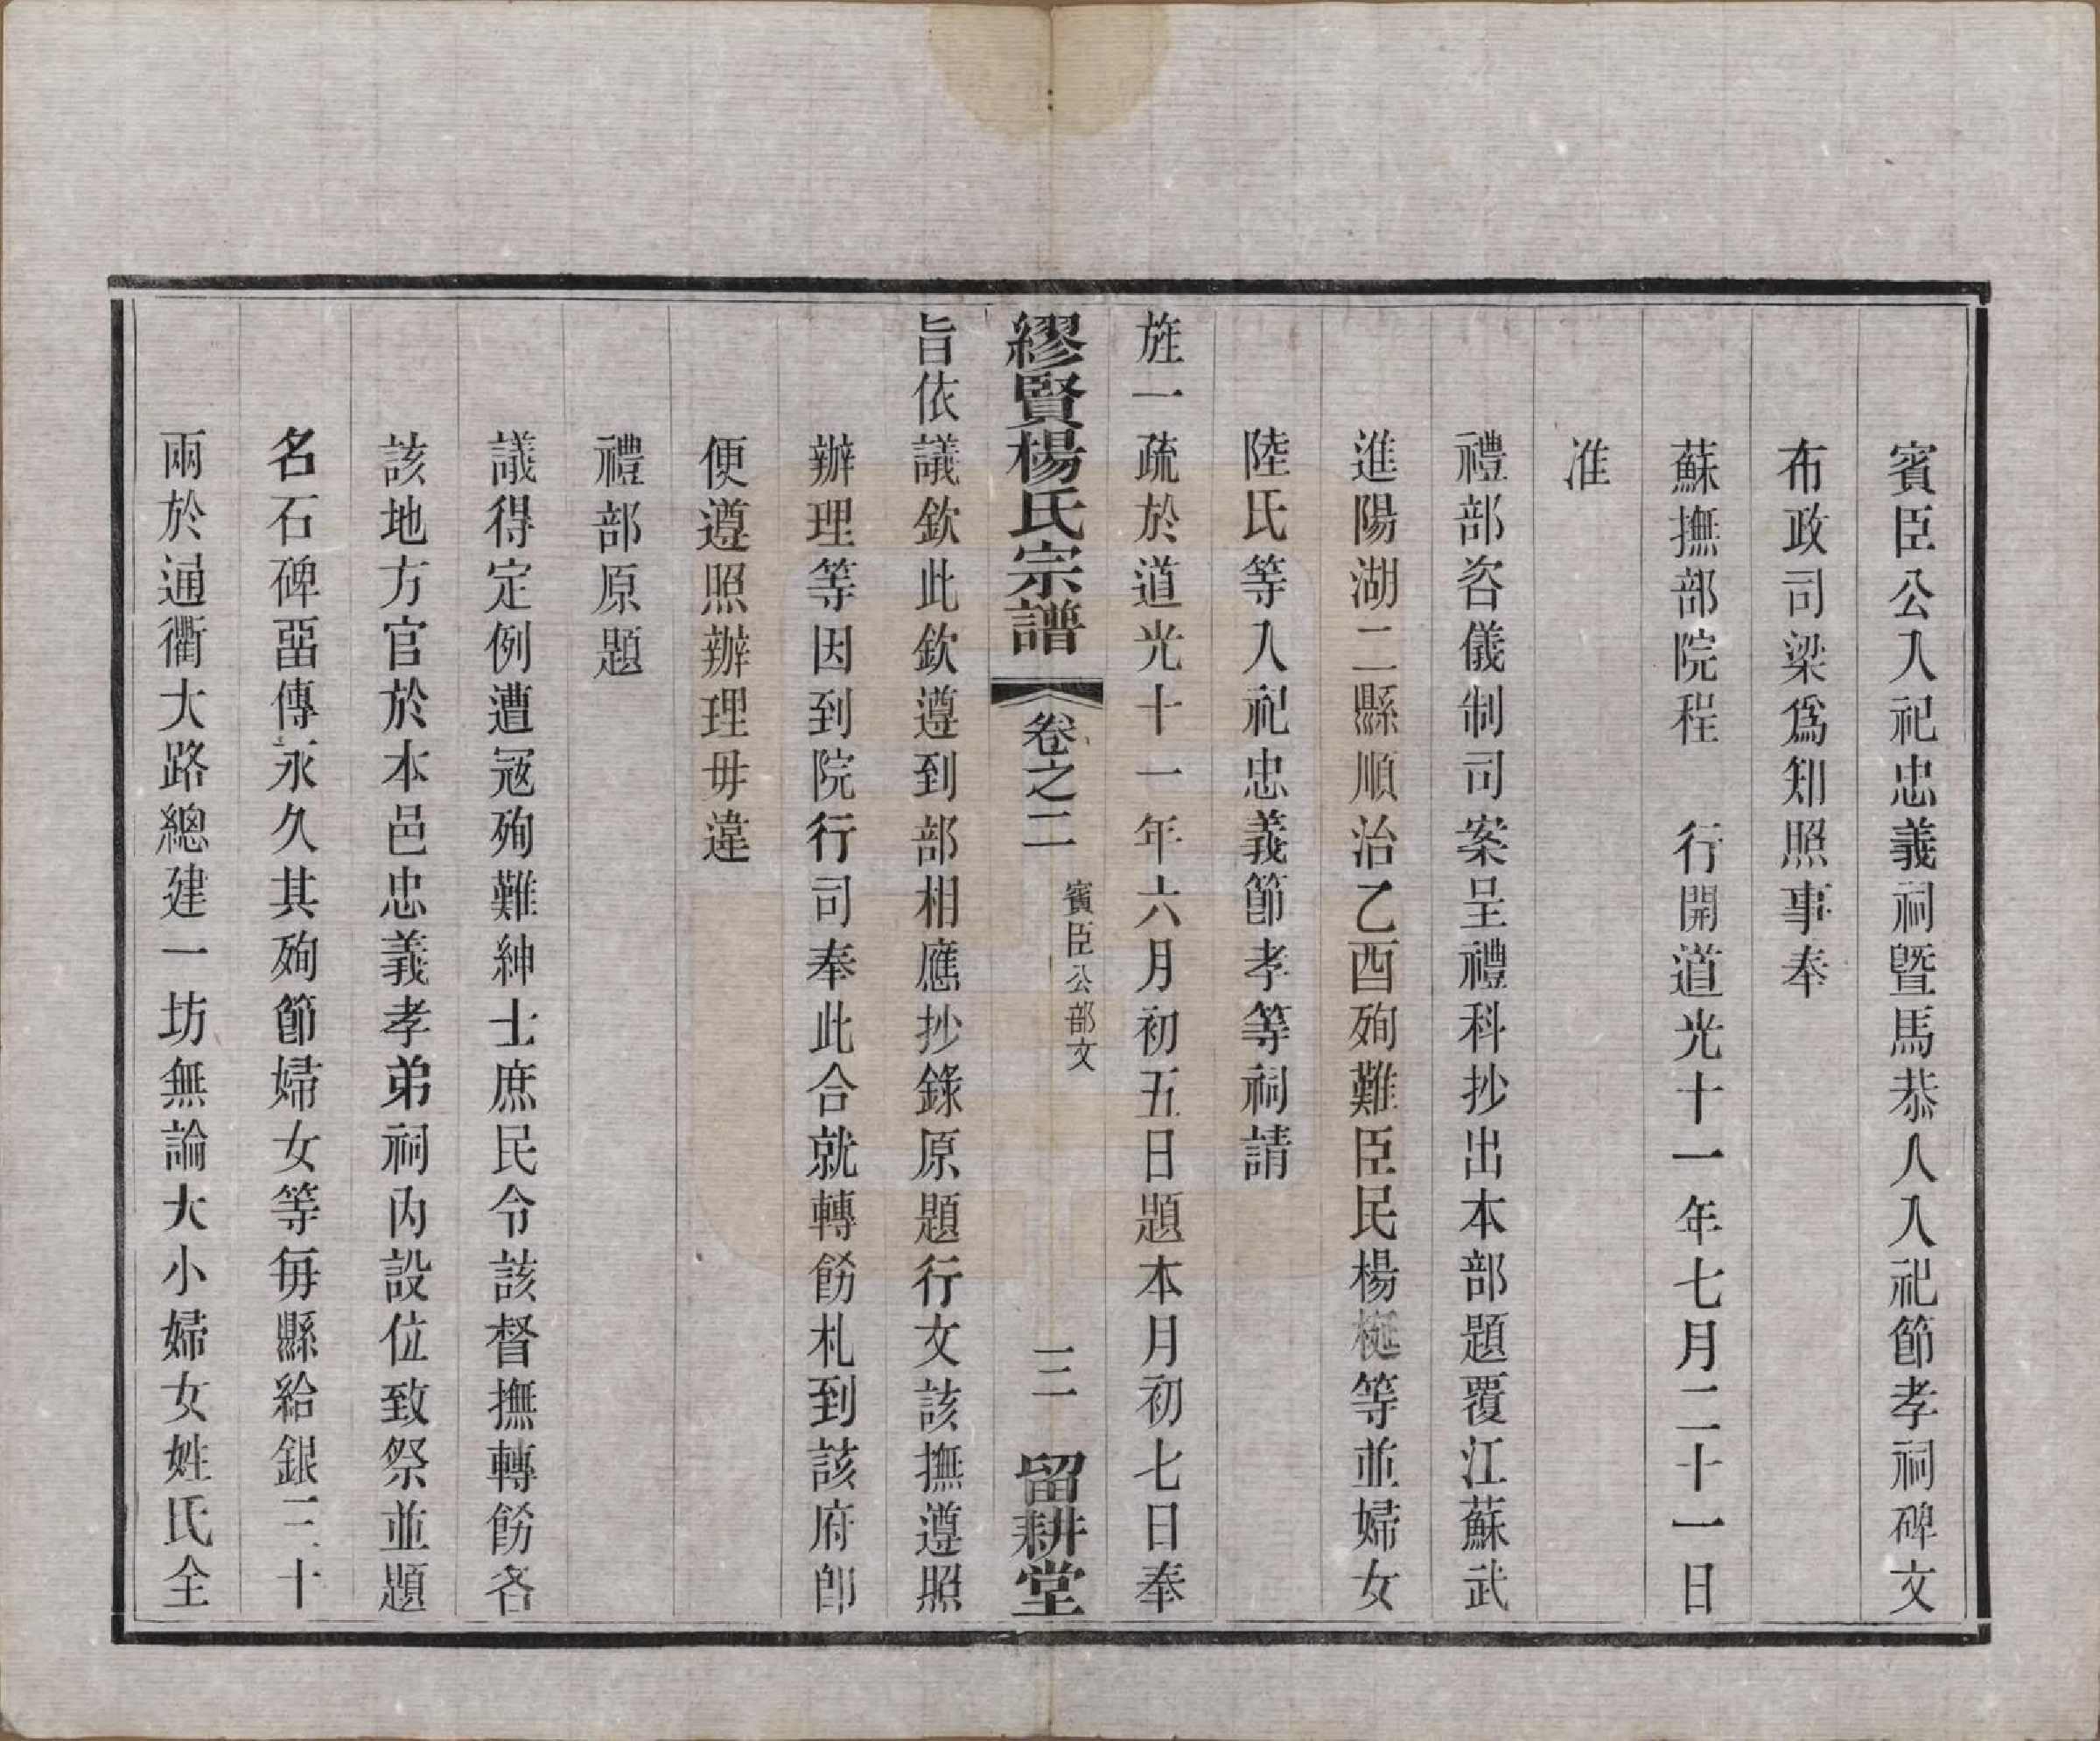 賓臣公入祀忠義祠暨馬恭人入祀節孝祠碑文
布政司梁爲知照事奉
蘇撫部院程　行開道光十一年七月二十一日
准
禮部咨儀制司案呈禮科抄出本部題覆江蘇武
進陽湖二縣順治乙酉殉難臣民楊梃等並婦女
陸氏等入祀忠義節孝等祠請
旌一疏於道光十一年六月初五日題本月初七日奉
繆賢楊氏宗譜　卷之二　賓臣公部文　三　留耕堂
旨依議欽此欽遵到部相應抄錄原題行文該撫遵照
辦理等因到院行司奉此合就轉飭札到該府卽
便遵照辦理毋違
禮部原題
議得定例遭寇殉難紳士庶民令該督撫轉飭各
該地方官於本邑忠義孝弟祠內設位致祭並題
名石碑畱傳永久其殉節婦女等每縣給銀三十
兩於通衢大路總建一坊無論大小婦女姓氏全